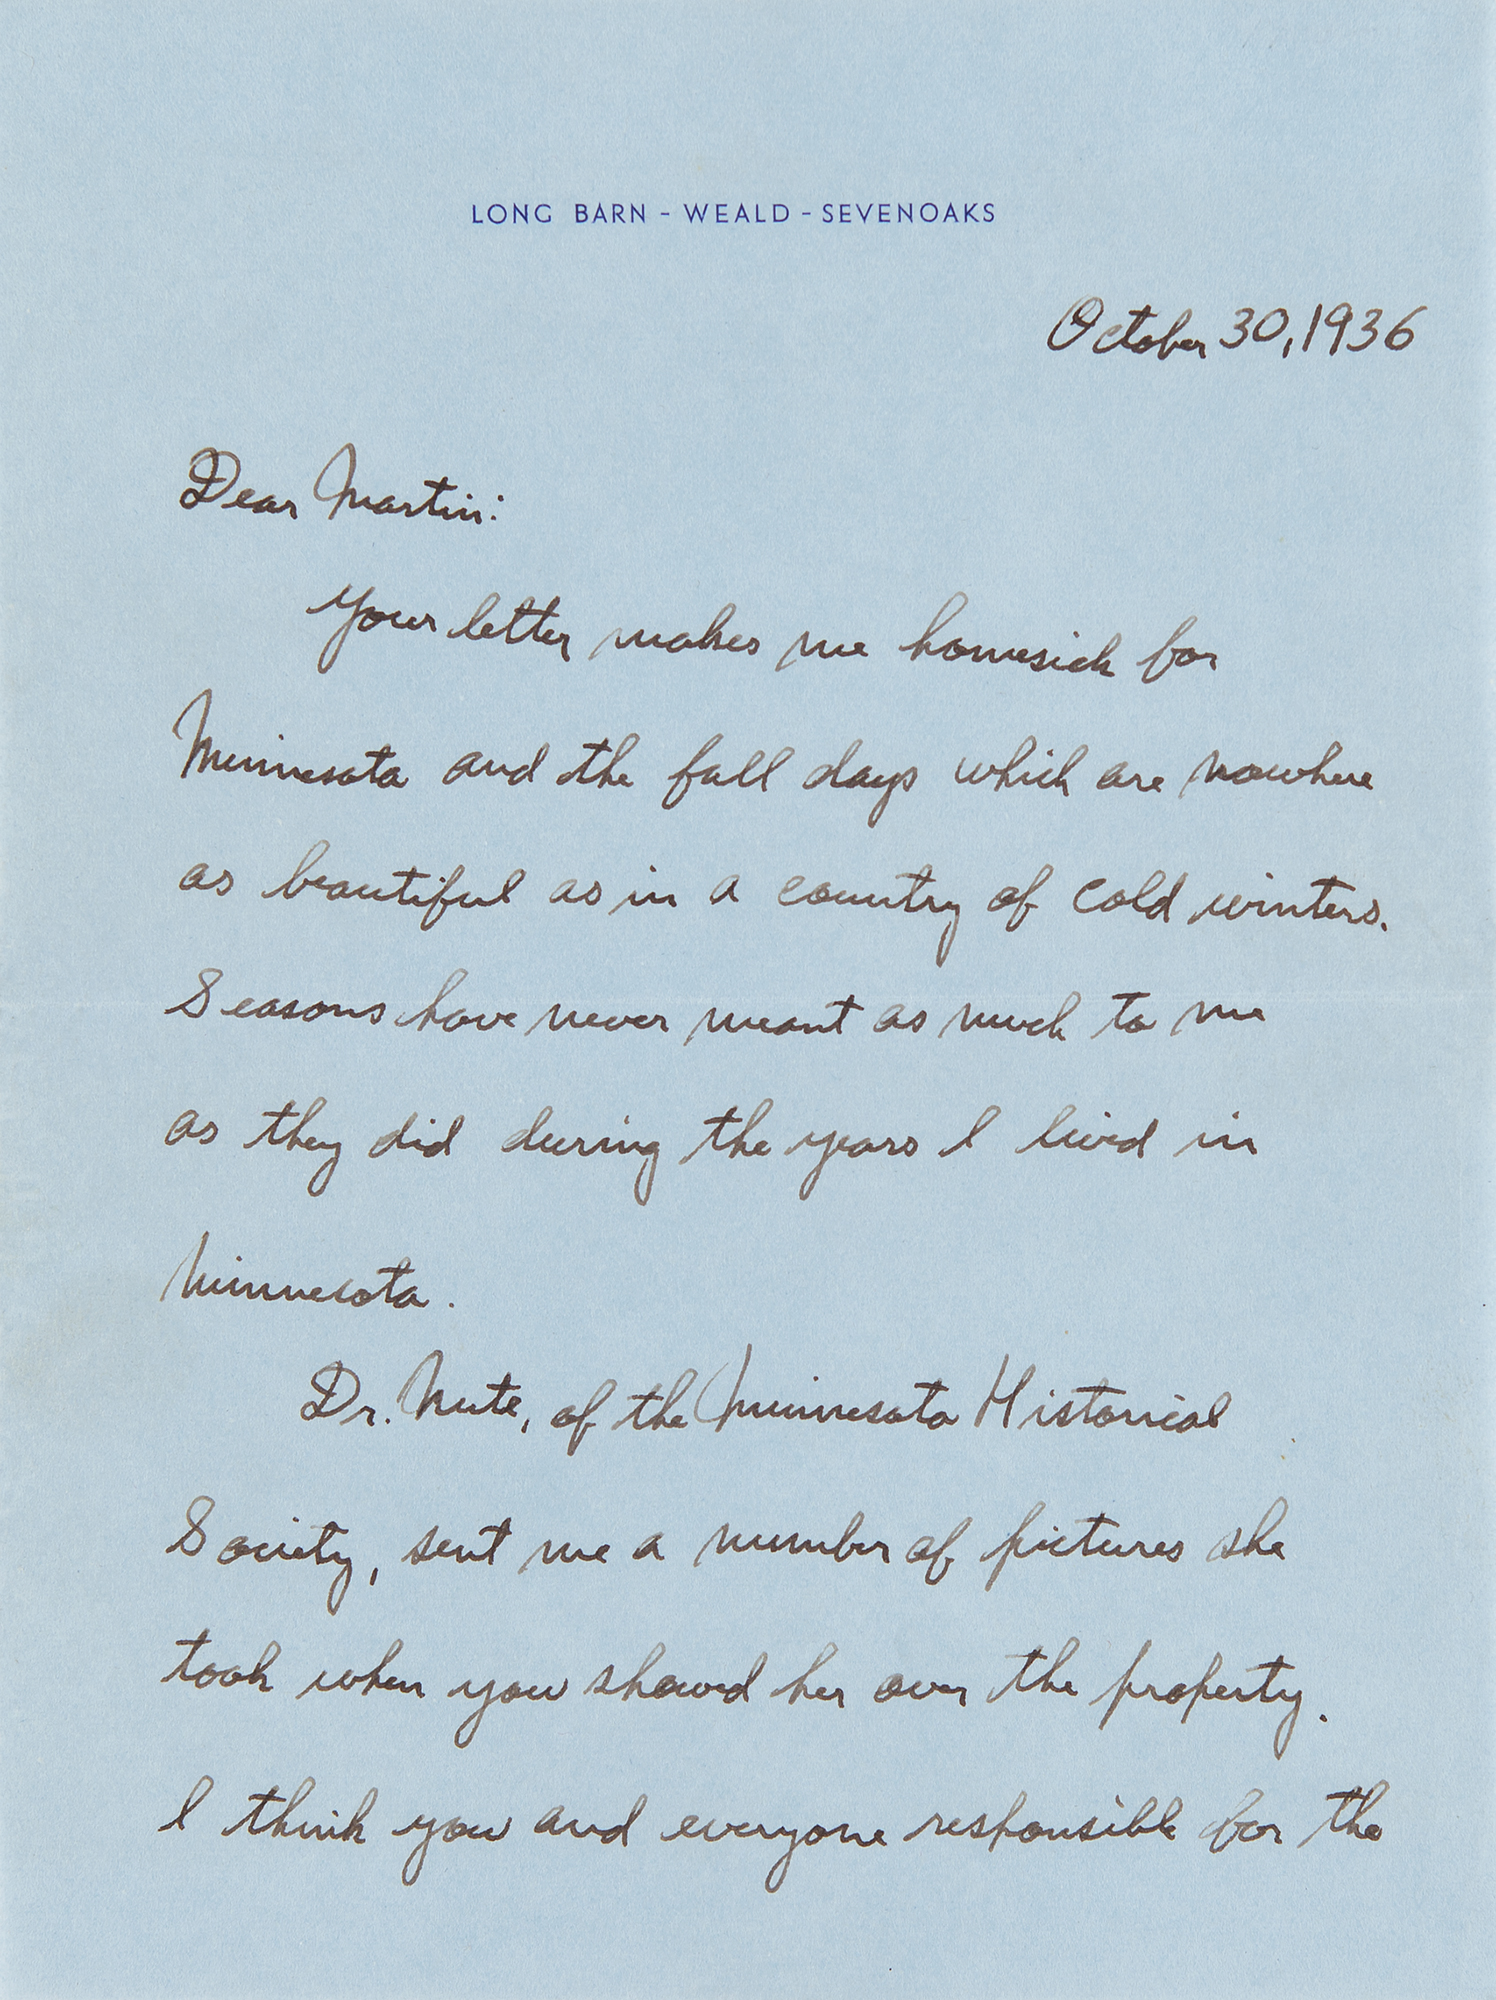 LONG BARN - WEALD - SEVENOAKS
October 30, 1936
Dear Martin:
Your letter makes me homesick for
Minnesota and the fall days which are nowhere
as beautiful as in a country of cold winters.
Seasons have never meant as much to me
as they did during the years I lived in
Minnesota.
Dr. Nute, of the Minnesota Historical
Society, sent me a number of pictures she
took when you showed her over the property.
I think you and everyone responsible for the